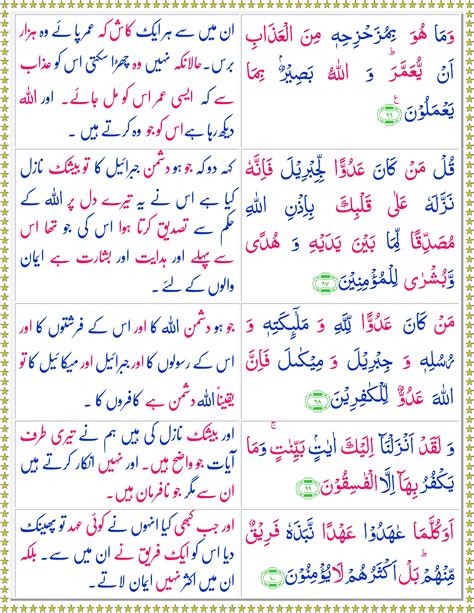 وَمَا هُوَ بِمُزَحْزِحِهٖ مِنَ الْعَذَابِ
اَنْ يُّعَمَّرَ ؕ وَ اللّٰهُ بَصِيْرٌۢ بِمَا
يَعْمَلُوْنَ ۧ ﴿۹۶﴾
ان میں سے ہر ایک کاش کہ عمر پائے وہ ہزار
برس۔ حالانکہ نہیں وہ چھڑا سکتی اس کو عذاب
سے کہ ایسی عمر اس کو مل جائے۔ اور اللہ
دیکھ رہا ہے اس کو جو وہ کرتے ہیں ۔
قُلْ مَنْ كَانَ عَدُوًّا لِّجِبْرِيْلَ فَاِنَّهٗ
نَزَّلَهٗ عَلٰى قَلْبِكَ بِاِذْنِ اللّٰهِ
مُصَدِّقًا لِّمَا بَيْنَ يَدَيْهِ وَ هُدًى
وَّبُشْرٰى لِلْمُؤْمِنِيْنَ ﴿۹۷﴾
کہہ دو کہ جو ہو دشمن جبرائیل کا تو بیشک نازل
کیا ہے اس نے یہ تیرے دل پر اللہ کے
حکم سے تصدیق کرتا ہوا اس کی جو تھا اس
سے پہلے اور ہدایت اور بشارت ہے ایمان
والوں کے لئے ۔
مَنْ كَانَ عَدُوًّا لِّلّٰهِ وَ مَلٰٓٮِٕكَتِهٖ وَ
رُسُلِهٖ وَ جِبْرِيْلَ وَ مِيْكٰٮلَ فَاِنَّ
اللّٰهَ عَدُوٌّ لِّلْكٰفِرِيْنَ ﴿۹۸﴾
جو ہو دشمن اللہ کا اور اس کے فرشتوں کا اور
اس کے رسولوں کا اور جبرائیل اور میکائیل کا تو
یقیناً اللہ دشمن ہے کافروں کا ۔
وَ لَقَدْ اَنْزَلْنَاۤ اِلَيْكَ اٰيٰتٍۢ بَيِّنٰتٍ ۚ وَمَا
يَكْفُرُ بِهَاۤ اِلَّا الْفٰسِقُوْنَ ﴿۹۹﴾
اور بیشک نازل کی ہیں ہم نے تیری طرف
آیات جو واضح ہیں۔ اور نہیں انکار کرتے ہیں
ان سے مگر جو نافرمان ہیں۔
اَوَکُلَّمَا عٰهَدُوْا عَهْدًا نَّبَذَهٗ فَرِيْقٌ
مِّنْهُمْ ؕ بَلْ اَكْثَرُهُمْ لَا يُؤْمِنُوْنَ ﴿۱۰۰﴾
اور جب کبھی کیا انہوں نے کوئی عہد تو پھینک
دیا اس کو ایک فریق نے ان میں سے۔ بلکہ
ان میں اکثر نہیں ایمان لاتے۔